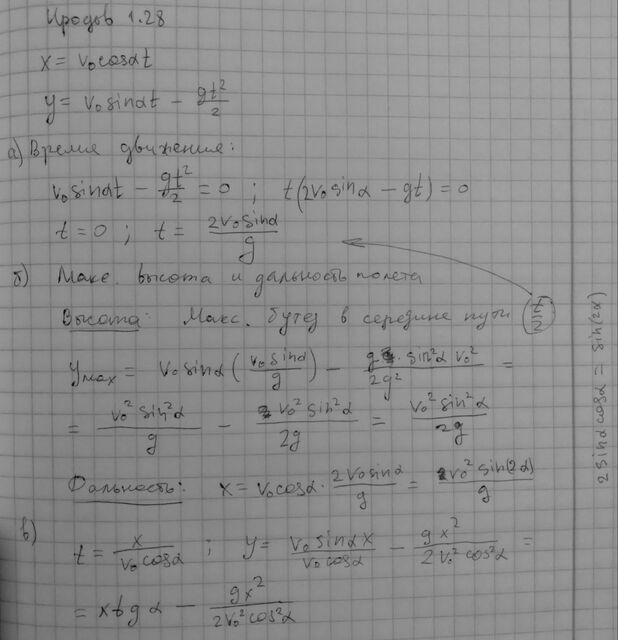 Иродов 1.28
x = v₀cosαt
y = v₀sinαt − gt²/2
а) Время движения:
v₀sinαt − gt²/2 = 0 ; t(2v₀sinα − gt) = 0
t = 0 ; t = 2v₀sinα/g
б) Макс. высота и дальность полета
Высота: Макс. будет в середине пути (t/2)
y max = v₀sinα(v₀sinα/g) − g·sin²α v₀²/2g² =
= v₀²sin²α/g − v₀²sin²α/2g = v₀²sin²α/2g
Дальность: x = v₀cosα · 2v₀sinα/g = v₀²sin(2α)/g
в)
t = x/v₀cosα ; y = v₀sinαx/v₀cosα − gx²/2v₀²cos²α =
= xtgα − gx²/2v₀²cos²α
2sinαcosα = sin(2α)